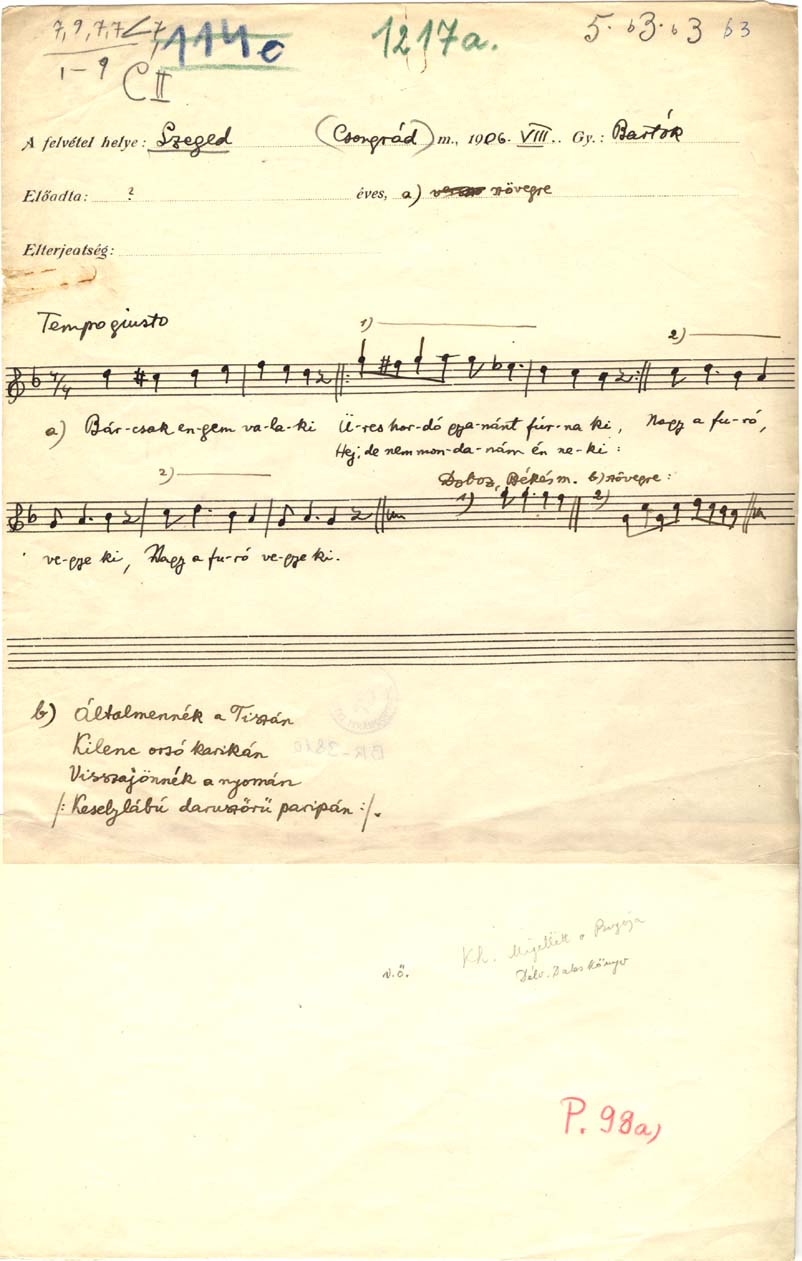 7, 9, 7, 7 < 7 7
1-9
C II
114c
1217a.
5. b3. b3 b3
A felvétel helye: Szeged (Csongrád) m., 1906. VIII. Gy.: Bartók
Előadta: ? éves, a) szövegre
Elterjeatség:
Tempo giusto
1)
2)
7/4
a) Bár-csak en-gem va-la-ki Ü-res hor-dó gya-nánt fúr-na ki, Nagy a fu-ró,
Hej, de nem mon-da-nám én ne-ki:
2)
Doboz, Békés m. b) szövegre:
1) 2)
ve-gye ki, Nagy a fu-ró ve-gye ki.
b) Általmennék a Tiszán
Kilenc orsó karikán
Visszajönnék a nyomán
/: Keselylábú daruszőrű paripán :/.
BR-3810
Kh.
v.ö.
Délv. Dalos Könyv
P. 98a)